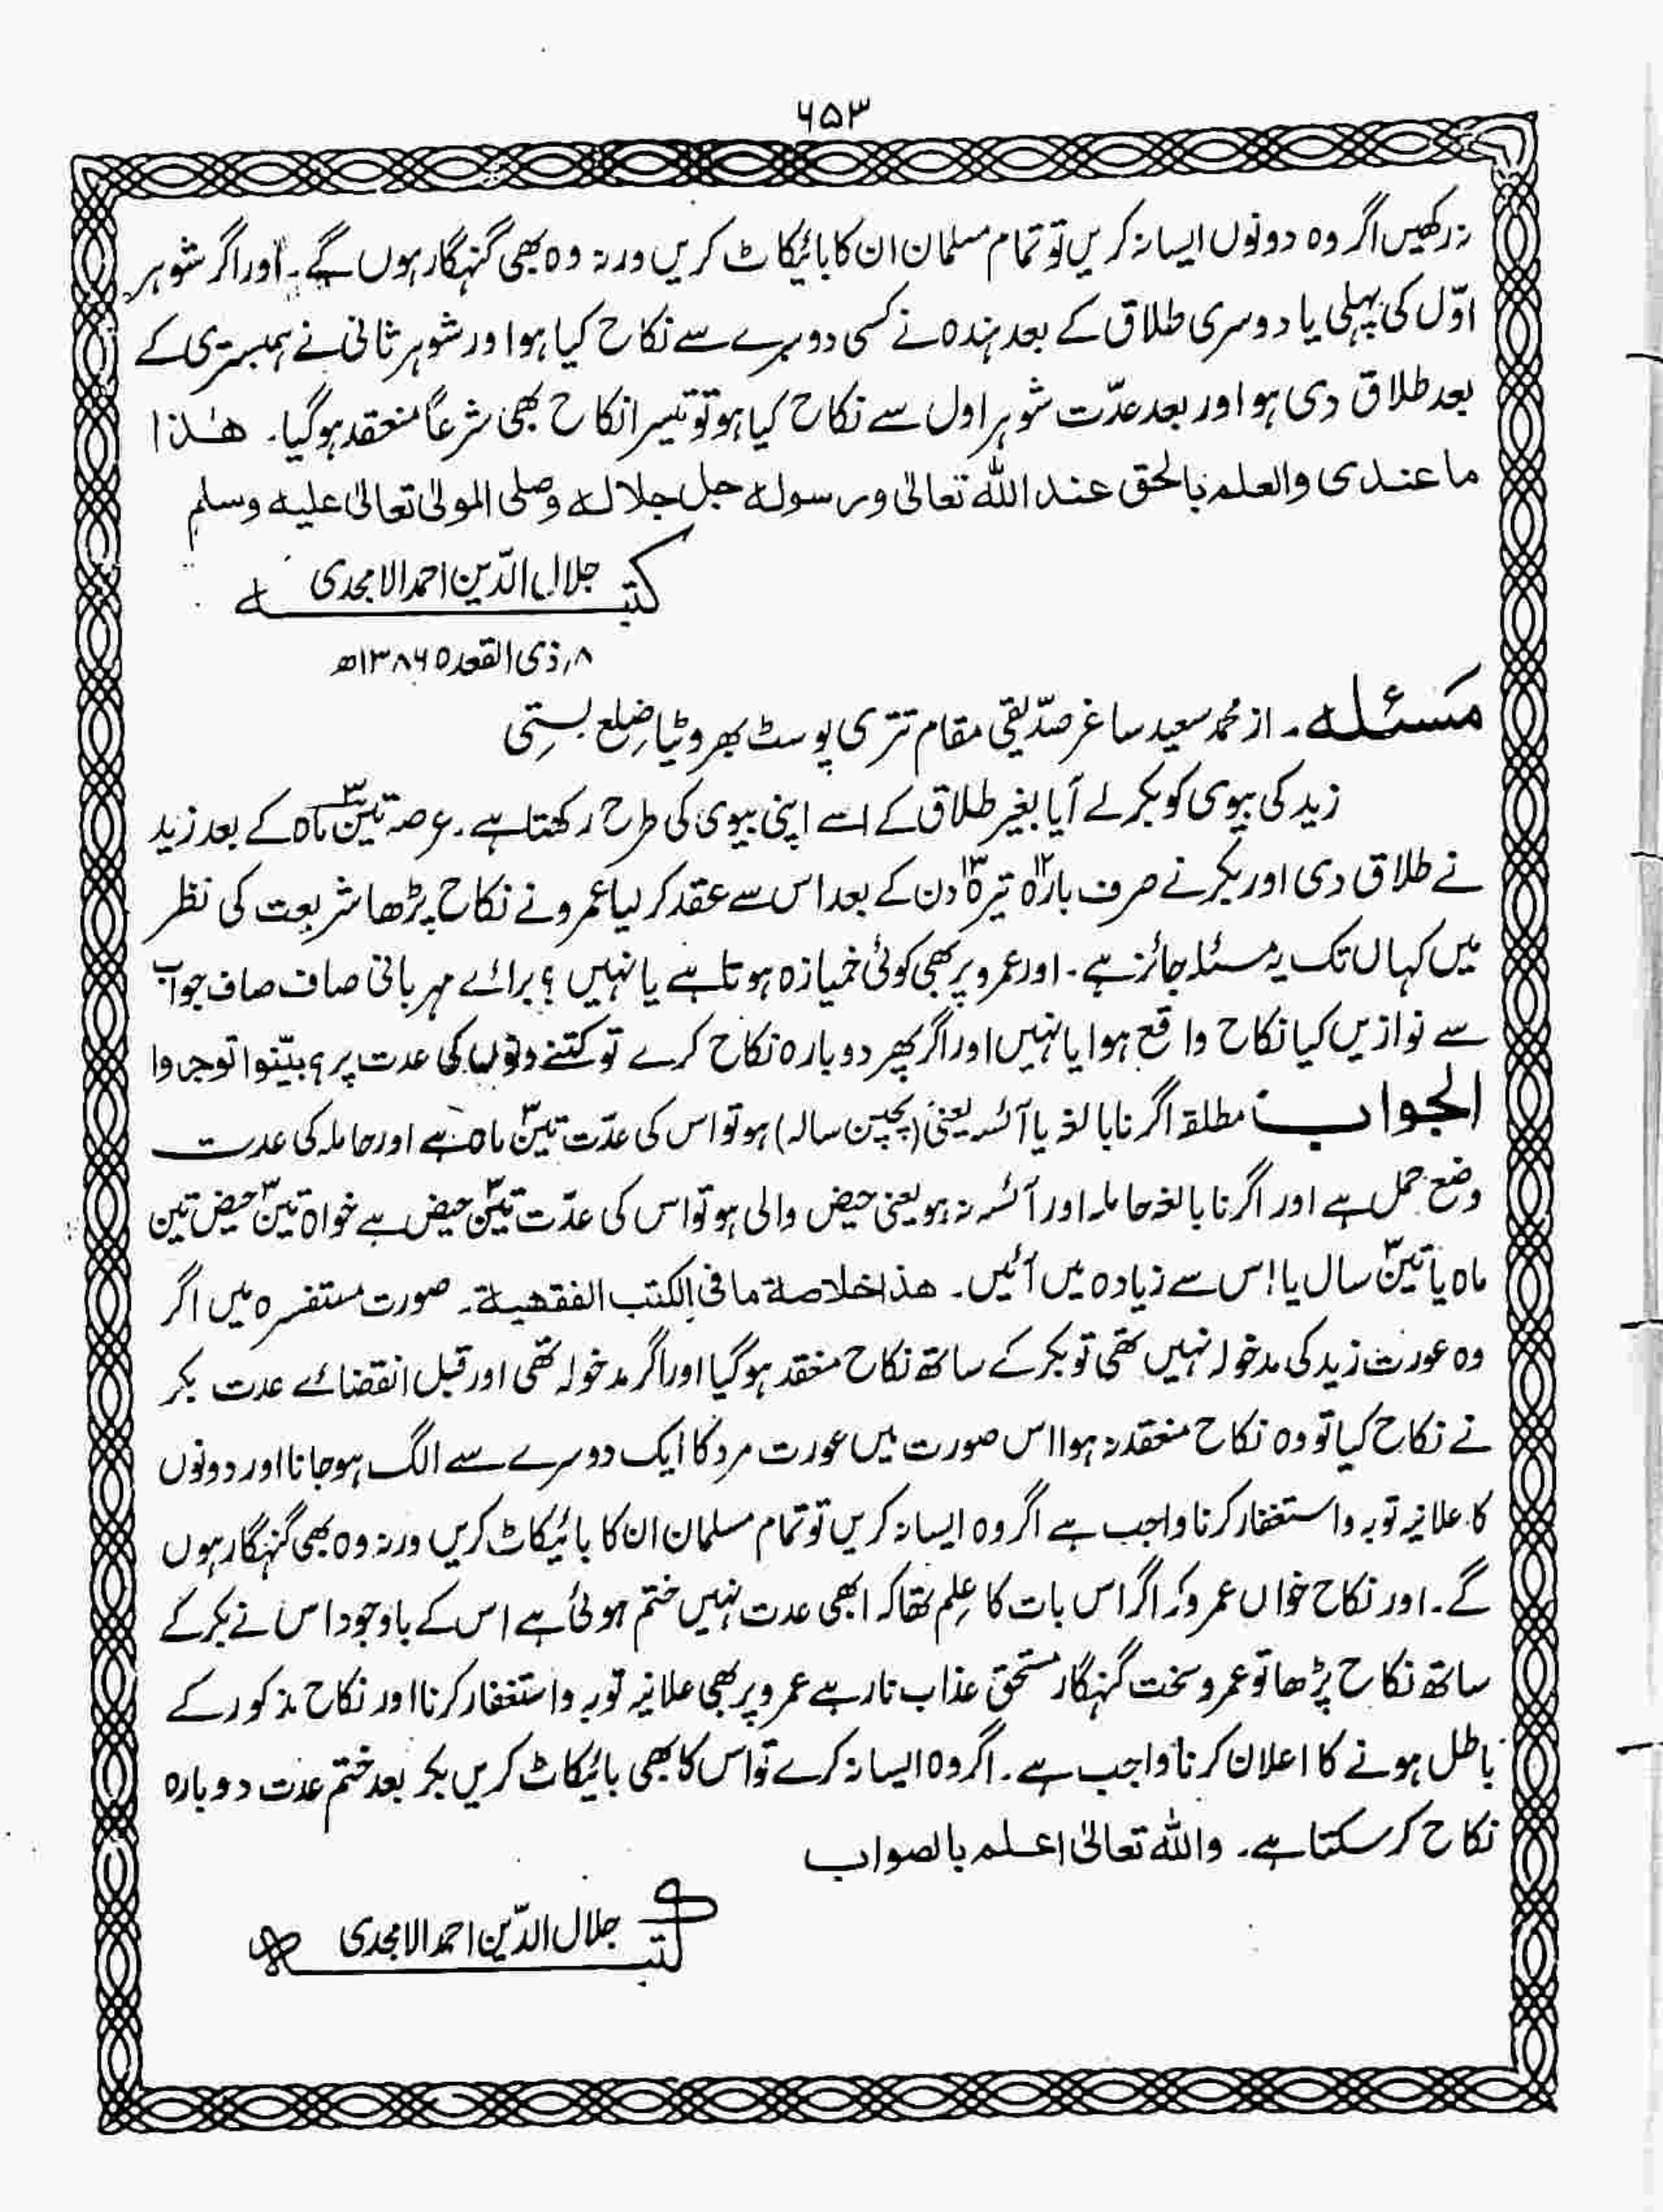 ۶۵۳
نہ رکھیں اگر وہ دونوں ایسا نہ کریں تو تمام مسلمان ان کا بائیکاٹ کریں ورنہ وہ بھی گنہگار ہوں گے۔ اور اگر شوہر
اوّل کی پہلی یا دوسری طلاق کے بعد ہندہ نے کسی دوسرے سے نکاح کیا ہو اور شوہر ثانی نے ہمبستری کے
بعد طلاق دی ہو اور بعد عدّت شوہر اول سے نکاح کیا ہو تو تیسرا نکاح بھی شرعاً منعقد ہوگیا۔ ھٰذا
ما عندی والعلم بالحق عند اللہ تعالیٰ ورسولہ جل جلالہ وصلی المولیٰ تعالیٰ علیہ وسلم
کتبہ جلال الدّین احمد الامجدی
۸؍ ذی القعدہ ۱۳۸۶ھ
مسئلہ۔ از محمد سعید ساغر صدّیقی مقام تتری پوسٹ بھروٹیا ضِلع بستی
زید کی بیوی کو بکر لے آیا بغیر طلاق کے اسے اپنی بیوی کی طرح رکھتا ہے۔ عرصہ تین۳ ماہ کے بعد زید
نے طلاق دی اور بکر نے صرف بارہ۱۲ تیرہ۱۳ دن کے بعد اس سے عقد کر لیا عمرو نے نکاح پڑھا شریعت کی نظر
میں کہاں تک یہ مسئلہ جائز ہے۔ اور عمرو پر بھی کوئی خمیازہ ہوتا ہے یا نہیں؟ برائے مہربانی صاف صاف جواب
سے نوازیں کیا نکاح واقع ہوا یا نہیں اور اگر پھر دوبارہ نکاح کرے تو کتنے دنوں کی عدت پر؟ بیّنوا توجروا
الجواب مطلقہ اگر نابالغہ یا آئسہ یعنی (پچپن سالہ) ہو تو اس کی عدّت تین۳ ماہ ہے اور حاملہ کی عدت
وضع حمل ہے اور اگر نابالغہ حاملہ اور آئسہ نہ ہو یعنی حیض والی ہو تو اس کی عدّت تین۳ حیض ہے خواہ تین۳ حیض تین
ماہ یا تین۳ سال یا اس سے زیادہ میں آئیں۔ ھذا خلاصۃ ما فی الکتب الفقھیۃ۔ صورت مستفسرہ میں اگر
وہ عورت زید کی مدخولہ نہیں تھی تو بکر کے ساتھ نکاح منعقد ہوگیا اور اگر مدخولہ تھی اور قبل انقضائے عدت بکر
نے نکاح کیا تو وہ نکاح منعقد نہ ہوا اس صورت میں عورت مرد کا ایک دوسرے سے الگ ہو جانا اور دونوں
کا علانیہ توبہ و استغفار کرنا واجب ہے اگر وہ ایسا نہ کریں تو تمام مسلمان ان کا بائیکاٹ کریں ورنہ وہ بھی گنہگار ہوں
گے۔ اور نکاح خواں عمرو کو اگر اس بات کا عِلم تھا کہ ابھی عدت نہیں ختم ہوئی ہے اس کے باوجود اس نے بکر کے
ساتھ نکاح پڑھا تو عمرو سخت گنہگار مستحق عذاب نار ہے عمرو پر بھی علانیہ توبہ و استغفار کرنا اور نکاح مذکور کے
باطل ہونے کا اعلان کرنا واجب ہے۔ اگر وہ ایسا نہ کرے تو اس کا بھی بائیکاٹ کریں بکر بعد ختم عدت دوبارہ
نکاح کر سکتا ہے۔ واللہ تعالیٰ اعلم بالصواب
کتبہ جلال الدّین احمد الامجدی